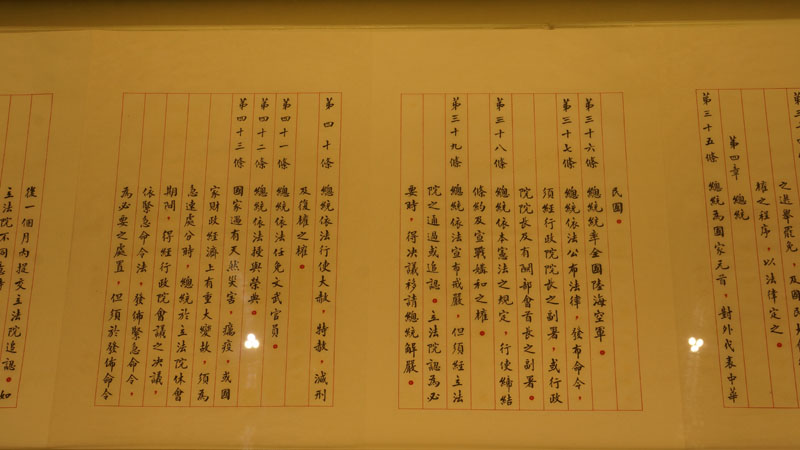 之選舉罷免，及國民
權之程序，以法律定之。
第四章 總統
第三十五條 總統為國家元首，對外代表中華
民國。
第三十六條 總統統率全國陸海空軍。
第三十七條 總統依法公布法律，發布命令，
須經行政院院長之副署，或行政
院院長及有關部會首長之副署。
第三十八條 總統依本憲法之規定，行使締結
條約及宣戰媾和之權。
第三十九條 總統依法宣布戒嚴，但須經立法
院之通過或追認。立法院認為必
要時，得決議移請總統解嚴。
第四十條 總統依法行使大赦，特赦，減刑
及復權之權。
第四十一條 總統依法任免文武官員。
第四十二條 總統依法授與榮典。
第四十三條 國家遇有天然災害，癘疫，或國
家財政經濟上有重大變故，須為
急速處分時，總統於立法院休會
期間，得經行政院會議之決議，
依緊急命令法，發佈緊急命令，
為必要之處置，但須於發佈命令
後一個月內提交立法院追認。如
立法院不同意時